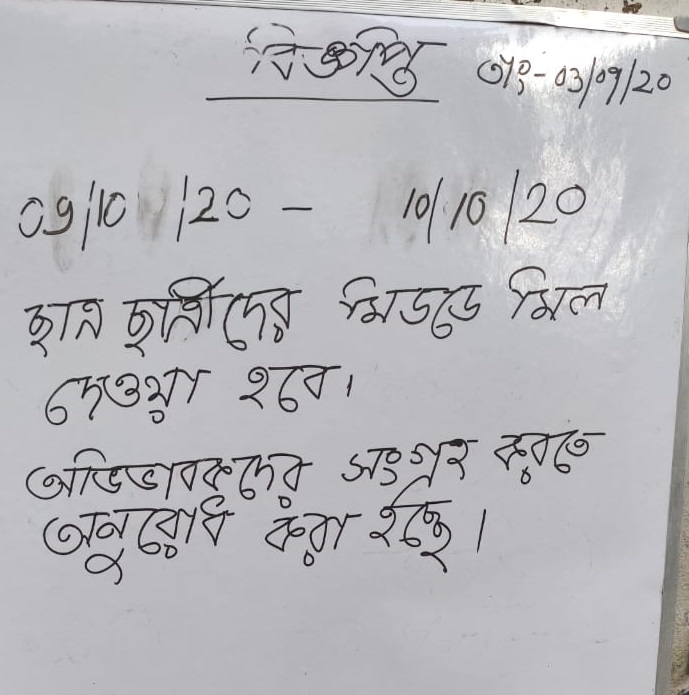 বিজ্ঞপ্তি তাং-03/09/20
09/10/20 - 10/10/20
ছাত্র ছাত্রীদের মিডডে মিল
দেওয়া হবে।
অভিভাবকদের সংগ্রহ করতে
অনুরোধ করা হচ্ছে।